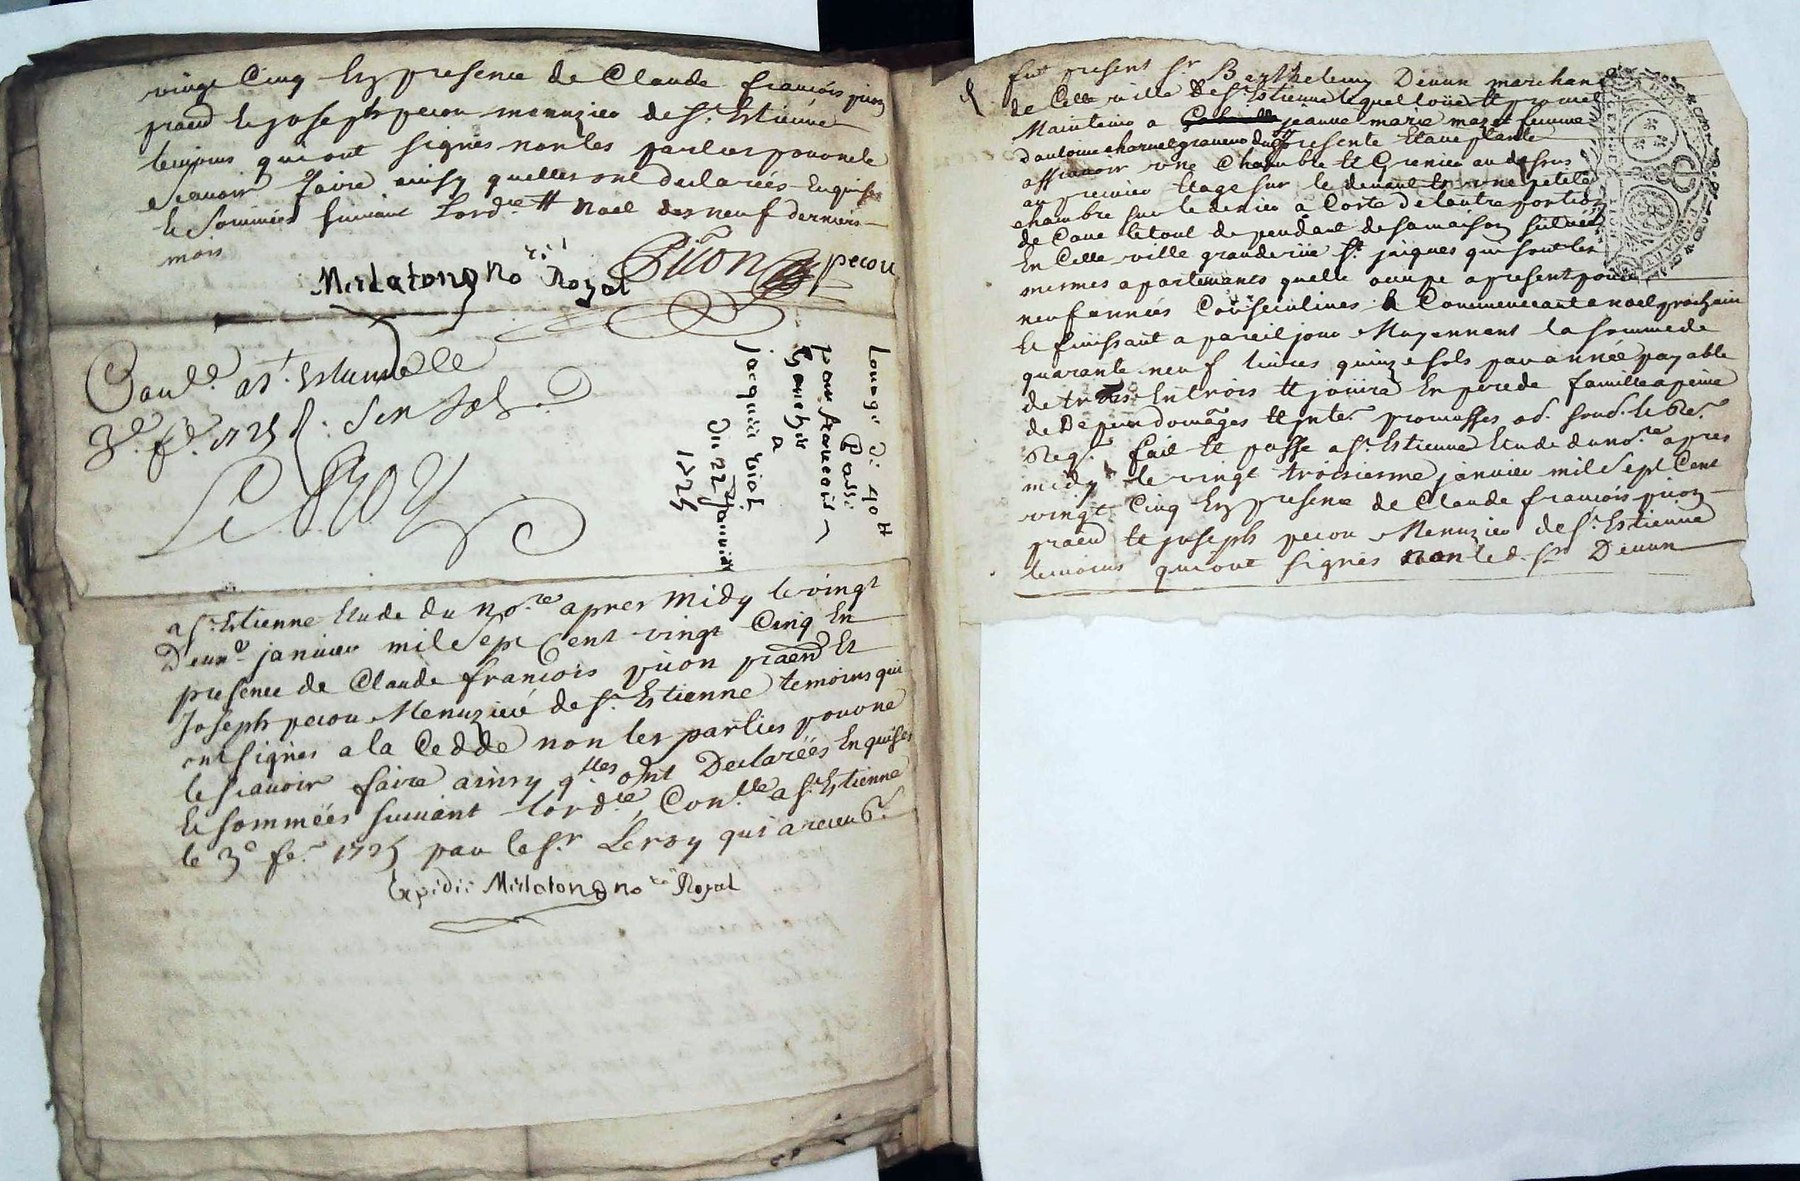 vingt Cinq En presence de Claude françois pion
praend et Joseph pecou menuzier de St Estienne
temoins qui ont signés non les parties pour ne le
scavoir faire ainsy quelles ont declarées Enquises
et Sommées suivant Lord.re tt noel des neuf derniers
mois
Mirlatong No.re Royal Pion pecou
Con.lle a St. Estienne le
3.e fe. 1725 R. six sols
Le Roy
Louage de 49 tt
Passé
pour françois
a
jacques viol
Du 22 Janvier
1725
a St Estienne Etude du No.re apres midy le vingt
Deux.e janvier mil Sept Cent vingt Cinq En
presence de Claude françois pion praend Et
Joseph pecou Menuzier de St Estienne temoins qui
ont signés a la Cedde non les parties pour ne
le scavoir faire ainsy q.lles ont Declarées Enquises
Et sommées suivant lord.re, Con.lle a St Estienne
le 3e fe. 1725 par le Sr Leroy qui a receu 6s.
Expédié Mirlatong no.re Royal
fut present Sr Berthelemy Devun marchand
de Cette ville de St Estienne lequel loue et promet
Maintenir a jeanne marie mazet femme
d'antoine charvel graveur du d. presente Et acceptante
assavoir une Chambre Et Grenier au dessus
au premier Etage sur le devant et une petite
chambre sur le derrier a Coste de lautre portion
de Cave le tout dependant de sa maison scituée
En Cette ville grande rue St. jaiques qui sont les
mesmes apartements quelle occupe a present pour
neuf années Consecutives & Commencant a noel prochain
Et finissant a pareil jour Moyennant la somme de
quarante neuf livres quinze sols par année payable
de trois En trois tt jouira En pere de famille a peine
de Depen domages tt inte.r promesses ob. soub. &c Re.
Reg. fait Et passé a St. Estienne Etude du no.re apres
midy le vingt troisieme janvier mil Sept Cent
vingt Cinq En presence de Claude françois pion
praend Et joseph pecou Menuzier de St. Estienne
temoins qui ont signés non led. Sr Devun